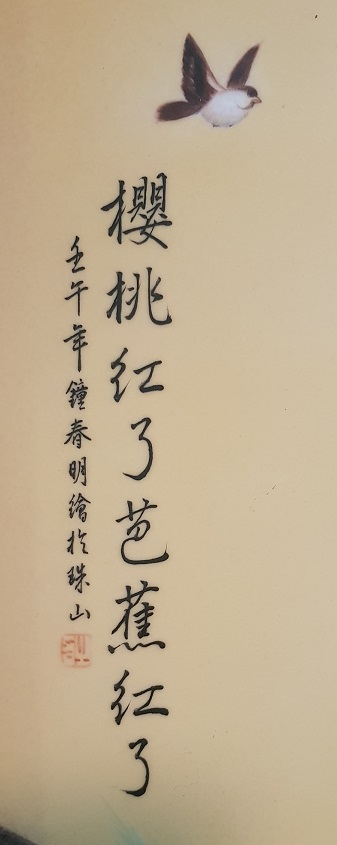 櫻桃红了芭蕉红了
壬午年鐘春明繪於珠山